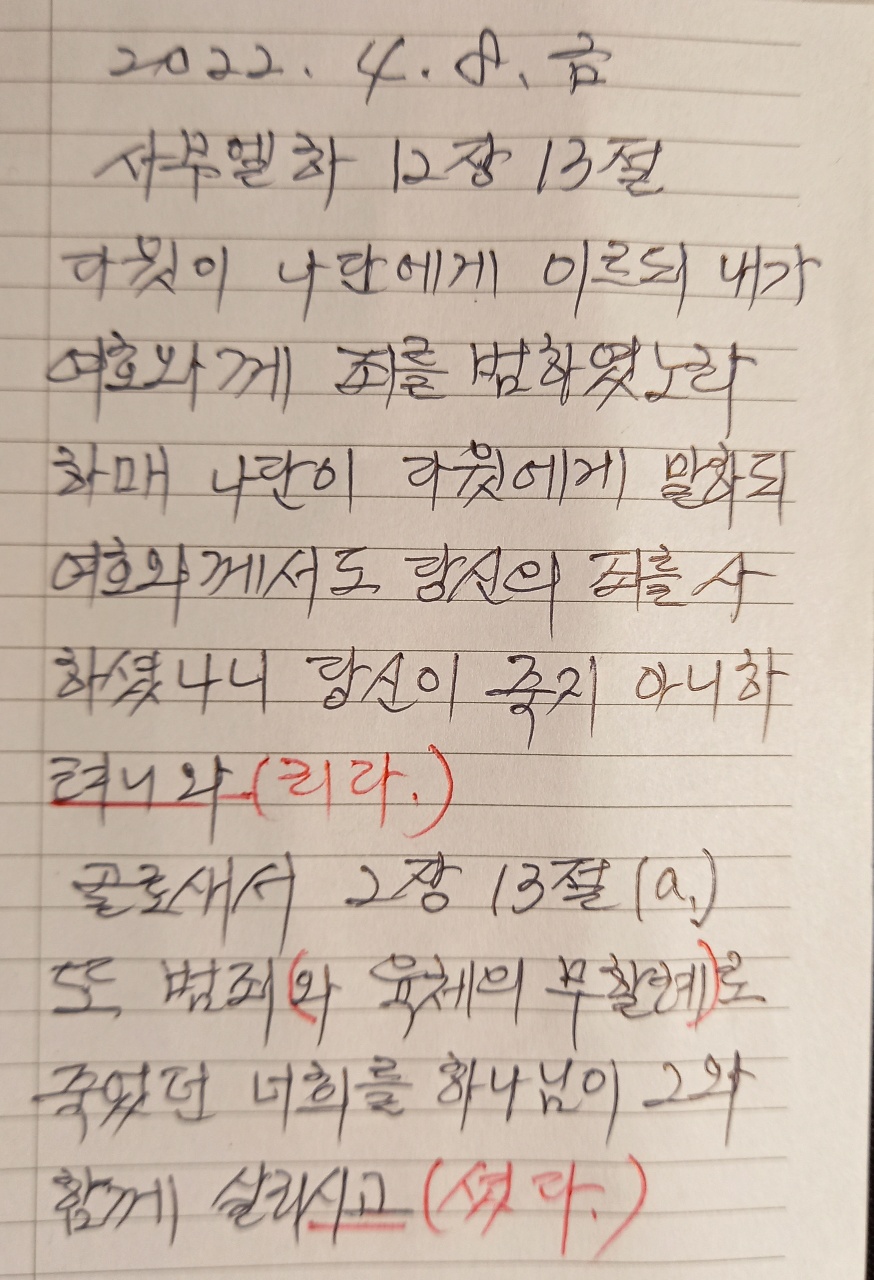 2022. 4. 8. 금
사무엘하 12장 13절
다윗이 나단에게 이르되 내가
여호와께 죄를 범하였노라
하매 나단이 다윗에게 말하되
여호와께서도 당신의 죄를 사
하셨나니 당신이 죽지 아니하
려니와 (리라.)
골로새서 2장 13절 (a.)
또 범죄(와 육체의 무할례)로
죽었던 너희를 하나님이 그와
함께 살리시고 (셨다.)